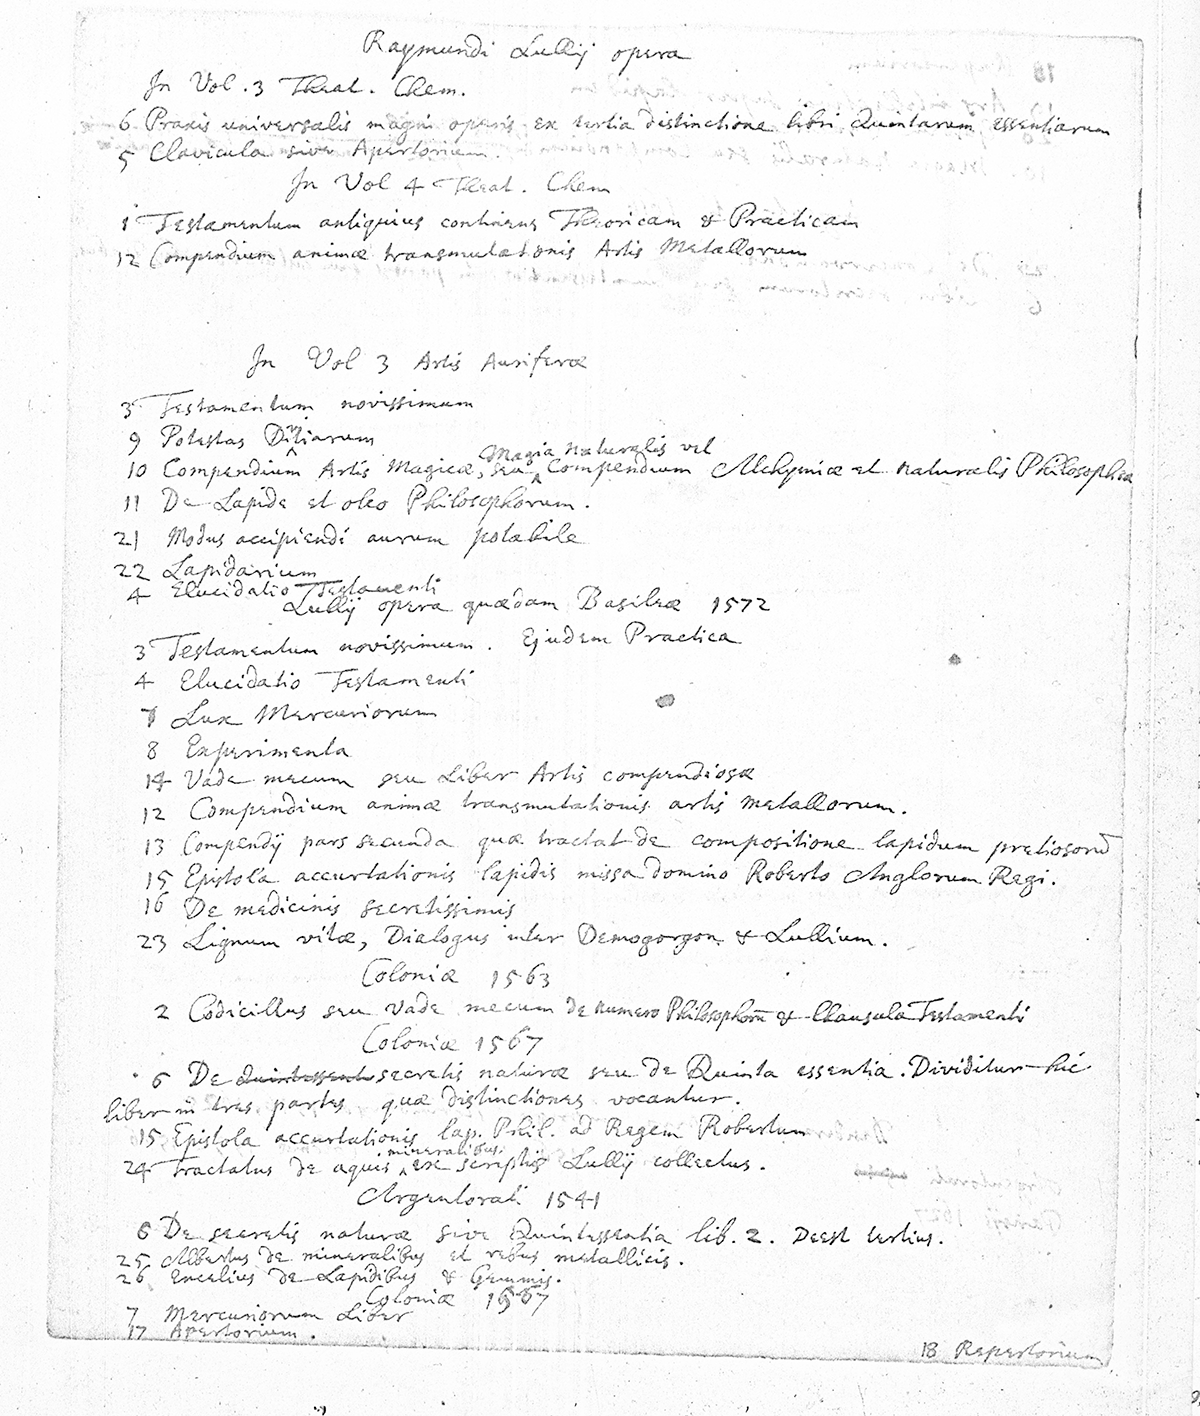 Raymundi Lullij opera
In Vol. 3 Theat. Chem.
6 Praxis universalis magni operis ex tertia distinctione libri Quintarum essentiarum
5 Clavicula sive Apertorium.
In Vol 4 Theat. Chem
1 Testamentum antiquius continens Theoricam & Practicam
12 Compendium animæ transmutationis Artis Metallorum
In Vol 3 Artis Auriferæ
3 Testamentum novissimum
9 Potestas Divitiarum
10 Compendium Artis Magicæ, seu Magia naturalis vel Compendium Alchymiæ et naturalis Philosophiæ
11 De Lapide et oleo Philosophorum.
21 Modus accipiendi aurum potabile
22 Lapidarium
4 Elucidatio Testamenti
Lullij opera quædam Basileæ 1572
3 Testamentum novissimum. Ejusdem Practica
4 Elucidatio Testamenti
7 Lux Mercuriorum
8 Experimenta
14 Vade mecum seu Liber Artis compendiosæ
12 Compendium animæ transmutationis artis metallorum.
13 Compendij pars secunda quæ tractat de compositione lapidum pretiosorū
15 Epistola accurtationis lapidis missa domino Roberto Anglorum Regi.
16 De medicinis secretissimis
23 Lignum vitæ, Dialogus inter Demogorgon & Lullium.
Coloniæ 1563
2 Codicillus seu Vade mecum de numero Philosophorū & Clausula Testamenti
Coloniæ 1567
6 De quintessent secretis naturæ seu de Quinta essentia. Dividitur hic
liber in tres partes quæ distinctiones vocantur.
15 Epistola accurtationis lap. Phil. ad Regem Robertum
24 Tractatus de aquis mineralibus ex scriptis Lullij collectus.
Argentorati 1541
6 De secretis naturæ sive Quintessentia lib. 2. Deest tertius.
25 Albertus de mineralibus et rebus metallicis.
26 Encelius de Lapidibus & Gemmis.
Coloniæ 1567
7 Mercuriorum Liber
17 Apertorium.
18 Repertorium